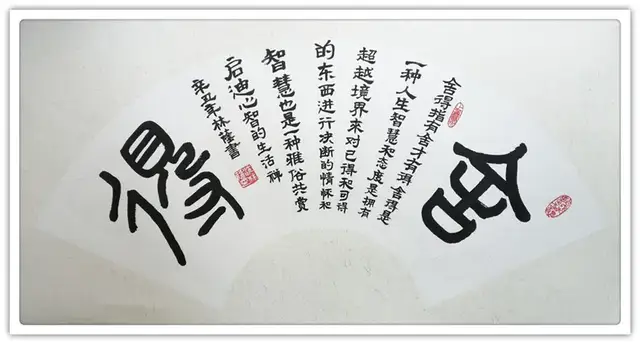 舍
舍得指有舍才有得舍得是
一种人生智慧和态度是拥有
超越境界来对已得和可得
的东西进行决断的情怀和
智慧也是一种雅俗共赏
启迪心智的生活禅
辛丑年林書
得